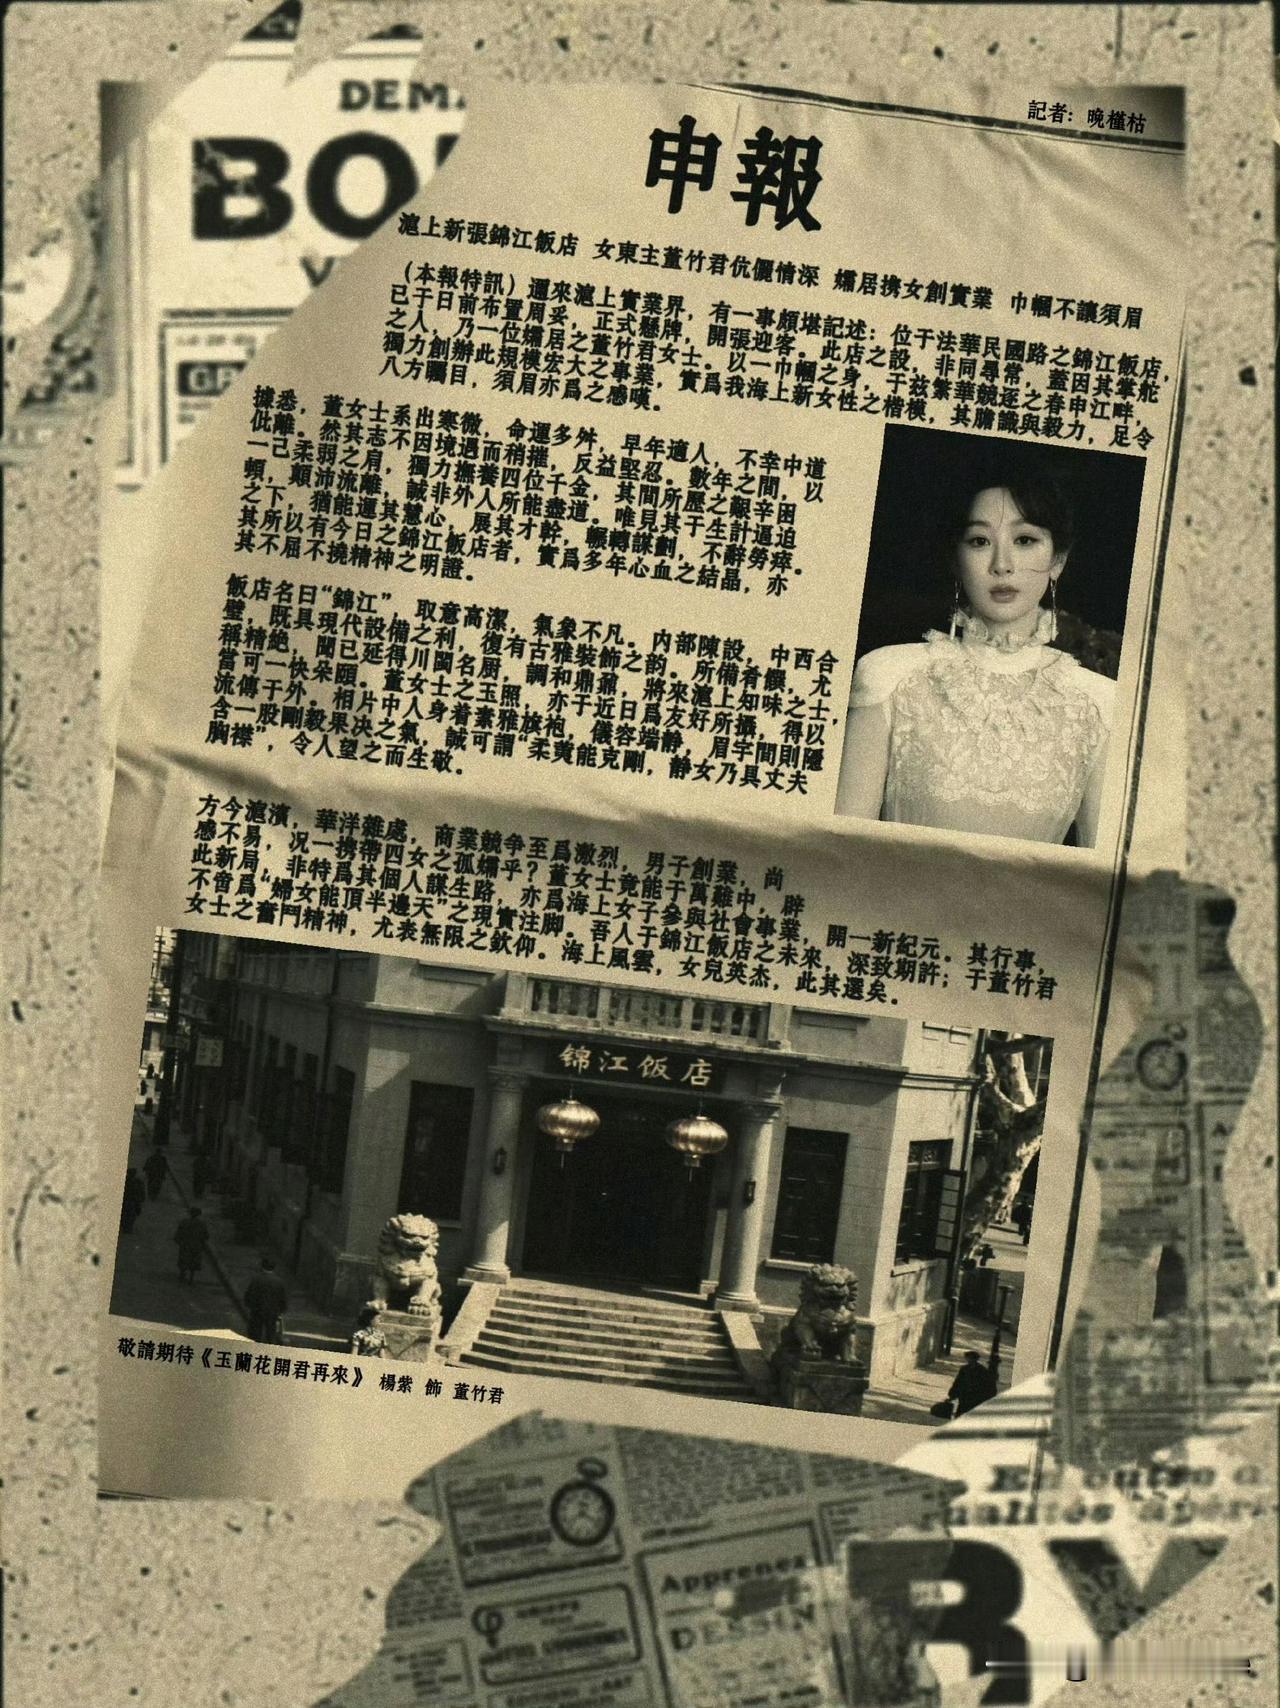 DEM
BO
記者：晚槿枯
申報
滬上新張錦江飯店 女東主董竹君伉儷情深 孀居携女創實業 巾幗不讓須眉
（本報特訊）邇來滬上實業界，有一事頗堪記述：位于法華民國路之錦江飯店，
已于日前布置周妥，正式懸牌，開張迎客。此店之設，非同尋常，蓋因其掌舵
之人，乃一位孀居之董竹君女士。以一巾幗之身，于兹繁華競逐之春申江畔，
獨力創辦此規模宏大之事業，實爲我海上新女性之楷模，其膽識與毅力，足令
八方矚目，須眉亦爲之感嘆。
據悉，董女士系出寒微，命運多舛，早年適人，不幸中道
仳離。然其志不因境遇而稍摧，反益堅忍。數年之間，以
一己柔弱之肩，獨力撫養四位千金，其間所歷之艱辛困
頓，顛沛流離，誠非外人所能盡道。唯見其于生計逼迫
之下，猶能運其慧心，展其才幹，輾轉謀劃，不辭勞瘁。
其所以有今日之錦江飯店者，實爲多年心血之結晶，亦
其不屈不撓精神之明證。
飯店名曰“錦江”，取意高潔，氣象不凡。内部陳設，中西合
璧，既具現代設備之利，復有古雅裝飾之韵。所備肴饌，尤
稱精絶，聞已延得川閩名厨，調和鼎鼐，將來滬上知味之士，
當可一快朵頤。董女士之玉照，亦于近日爲友好所攝，得以
流傳于外。相片中人身着素雅旗袍，儀容端静，眉宇間則隱
含一股剛毅果决之氣，誠可謂“柔荑能克剛，静女乃具丈夫
胸襟”，令人望之而生敬。
方今滬濱，華洋雜處，商業競争至爲激烈，男子創業，尚
感不易，况一携帶四女之孤孀乎？董女士竟能于萬難中，辟
此新局，非特爲其個人謀生路，亦爲海上女子參與社會事業，開一新紀元。其行事，
不啻爲“婦女能頂半邊天”之現實注脚。吾人于錦江飯店之未來，深致期許；于董竹君
女士之奮鬥精神，尤表無限之欽仰。海上風雲，女兒英杰，此其選矣。
錦江饭店
敬請期待《玉蘭花開君再來》 楊紫 飾 董竹君
En outre
Apprenez
DESSIN
RY